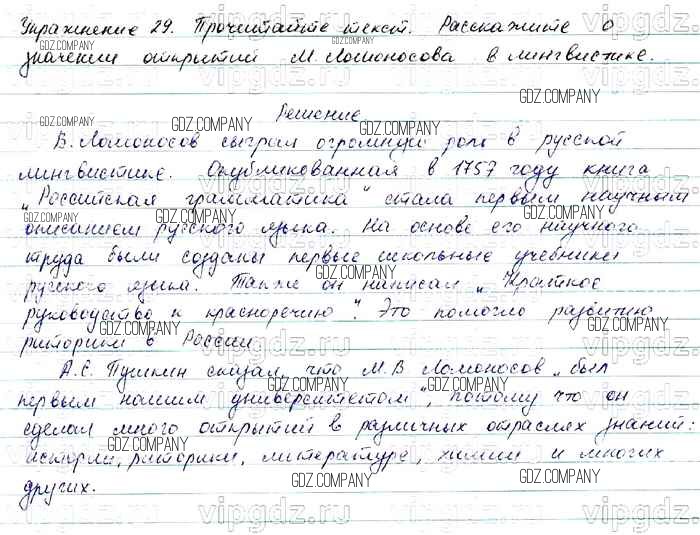 Упражнение 29. Прочитайте текст. Расскажите о
значении открытий М. Ломоносова в лингвистике.
Решение
В. Ломоносов сыграл огромную роль в русской
лингвистике. Опубликованная в 1757 году книга
„Российская грамматика" стала первым научным
описанием русского языка. На основе его научного
труда были созданы первые школьные учебники
русского языка. Также он написал „Краткое
руководство к красноречию". Это помогло развитию
риторики в России
А.С. Пушкин сказал, что М.В Ломоносов „был
первым нашим университетом", потому что он
сделал много открытий в различных отраслях знаний:
истории, риторики, литературе, химии и многих
других.